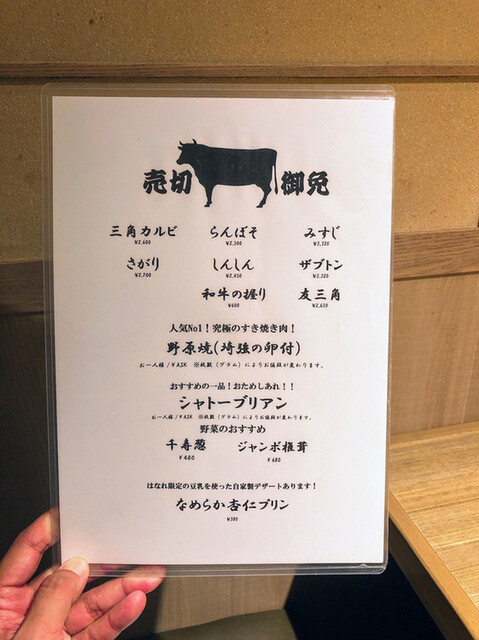 売切 御免
三角カルビ らんぼそ みすじ
¥2,600 ¥2,500 ¥3,320
さがり しんしん ザブトン
¥2,700 ¥2,450 ¥3,320
和牛の握り 友三角
¥600 ¥2,650
人気No1！究極のすき焼き肉！
野原焼(埼強の卵付)
お一人様/¥ASK ※枚数（グラム）によりお値段が変わります。
おすすめの一品！おためしあれ！！
シャトーブリアン
お一人様/¥ASK ※枚数（グラム）によりお値段が変わります。
野菜のおすすめ
千寿葱 ジャンボ椎茸
¥480 ¥680
はなれ限定の豆乳を使った自家製デザートあります！
なめらか杏仁プリン
¥380